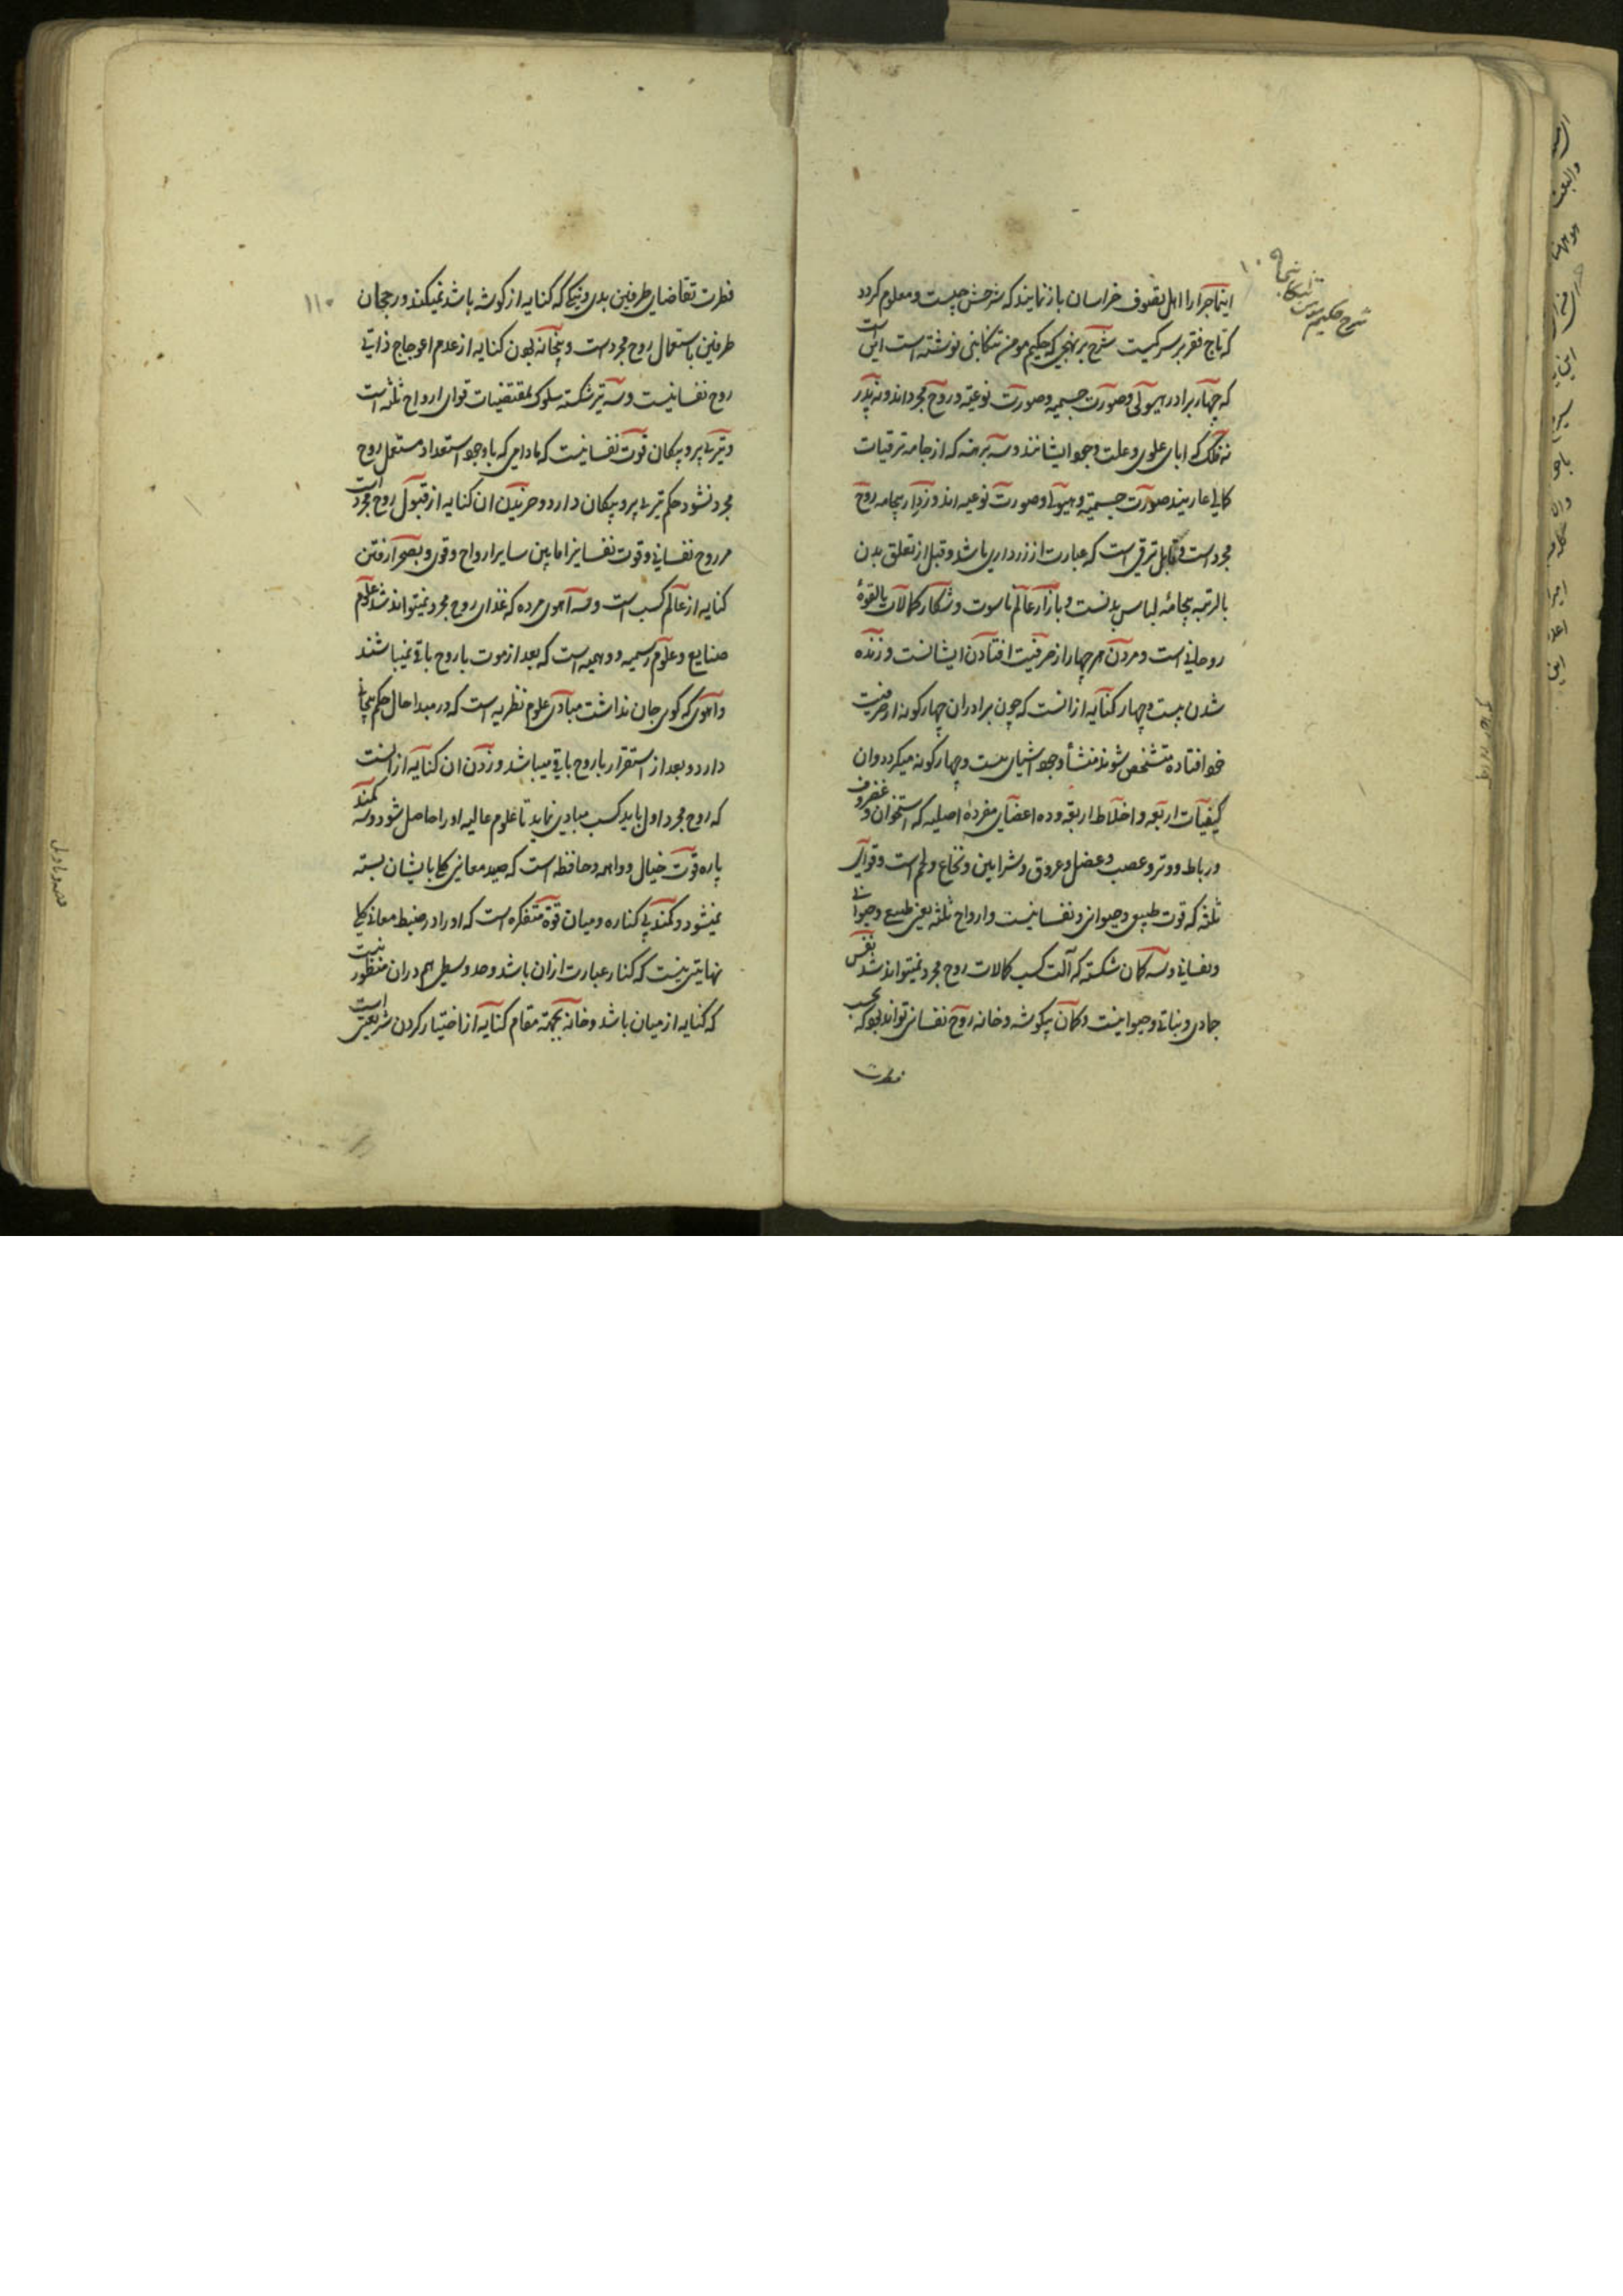 شرح حکیم مومن تنکابنی
اینماجرا را اهل تصوف خراسان باز نمایند که شرحش چیست و معلوم کردد
که تاج فقر بر سر کیست شرح بر نهجی که حکیم مومن تنکابنی نوشته است این است
که چهار برادر هیولی و صورت جسمیه و صورت نوعیه و روح مجرداند و نه پدر
نه فلک که ابای علوی و علت وجود ایشانند و سه برهنه که از جامه ترقیات
کمالی عاریند صورت جسمیه و هیولی و صورت نوعیه اند و زردار بیجامه روح
مجرد است که قابل ترقی است که عبارت از زرداری باشد و قبل از تعلق بدن
بالرتبه بیجامهٔ لباس بدنست و بازار عالم ناسوت و شکار کمالات بالقوهٔ
روحانی است و مردن هر چهار از حرفیت افتادن ایشانست و زنده
شدن بیست و چهار کنایه از انست که چون برادران چهارکونه از حرفیت
خود افتاده متشخص شوند منشأ وجود اشیای بیست و چهارکونه میکردد و ان
کیفیات اربعه و اخلاط اربعه و ده اعضای مفردهٔ اصلیه که استخوان و غضروف
و رباط و وتر و عصب و عضل و عروق و شرایین و نخاع و لحم است و قوای
ثلثه که قوت طبیعی و حیوانی و نفسانیست و ارواح ثلثه یعنی طبیعی و حیوانی
و نفسانی و سه کمان شکسته که آلت کسب کمالات روح مجرد نمیتواند شد نفس
جمادی و نباتی و حیوانیست و کمان بیکوشه و خانه روح نفسانی تواند بود که بحسب
فطرت
۱۱۰
فطرت تقاضای طرفین بدی و نیکی که کنایه از کوشه باشد نمیکند و رجحان
طرفین باستعمال روح مجرد است و بیخانه بودن کنایه از عدم اعوجاج ذاتی
روح نفسانیست و سه تیر شکسته سلوک بمقتضیات قوای ارواح ثلثه است
و تیر بی پر و پیکان قوت نفسانیست که مادامی که با وجود استعداد مستعمل روح
مجرد نشود حکم تیر بی پر و پیکان دارد و خریدن ان کنایه از قبول روح مجرد است
مر روح نفسانی و قوت نفسانیرا مابین سایر ارواح و قوی و بصحرا رفتن
کنایه از عالم کسب است و سه آهوی مرده که غذای روح مجرد نمیتواند شد علوم
صنایع و علوم رسمیه و وهمیه است که بعد از موت با روح باقی نمیباشند
و آهوی که کوی جان نداشت مبادی علوم نظریه است که در مبدا حال حکم بیجان
دارد و بعد از استقرار با روح باقی میباشد و زدن ان کنایه از انست
که روح مجرد اول باید کسب مبادی نماید تا علوم عالیه او را حاصل شود و سه کمند
پاره قوت خیال و واهمه و حافظه است که صید معانی کلی بایشان بسته
نمیشود و کمند بی کناره و میان قوهٔ متفکره است که او را در ضبط معانی کلی
نهایتی نیست که کنار عبارت ازان باشد و حد وسطی هم دران منظور نیست
که کنایه از میان باشد و خانه بجهة مقام کنایه از اختیار کردن شریعتی است